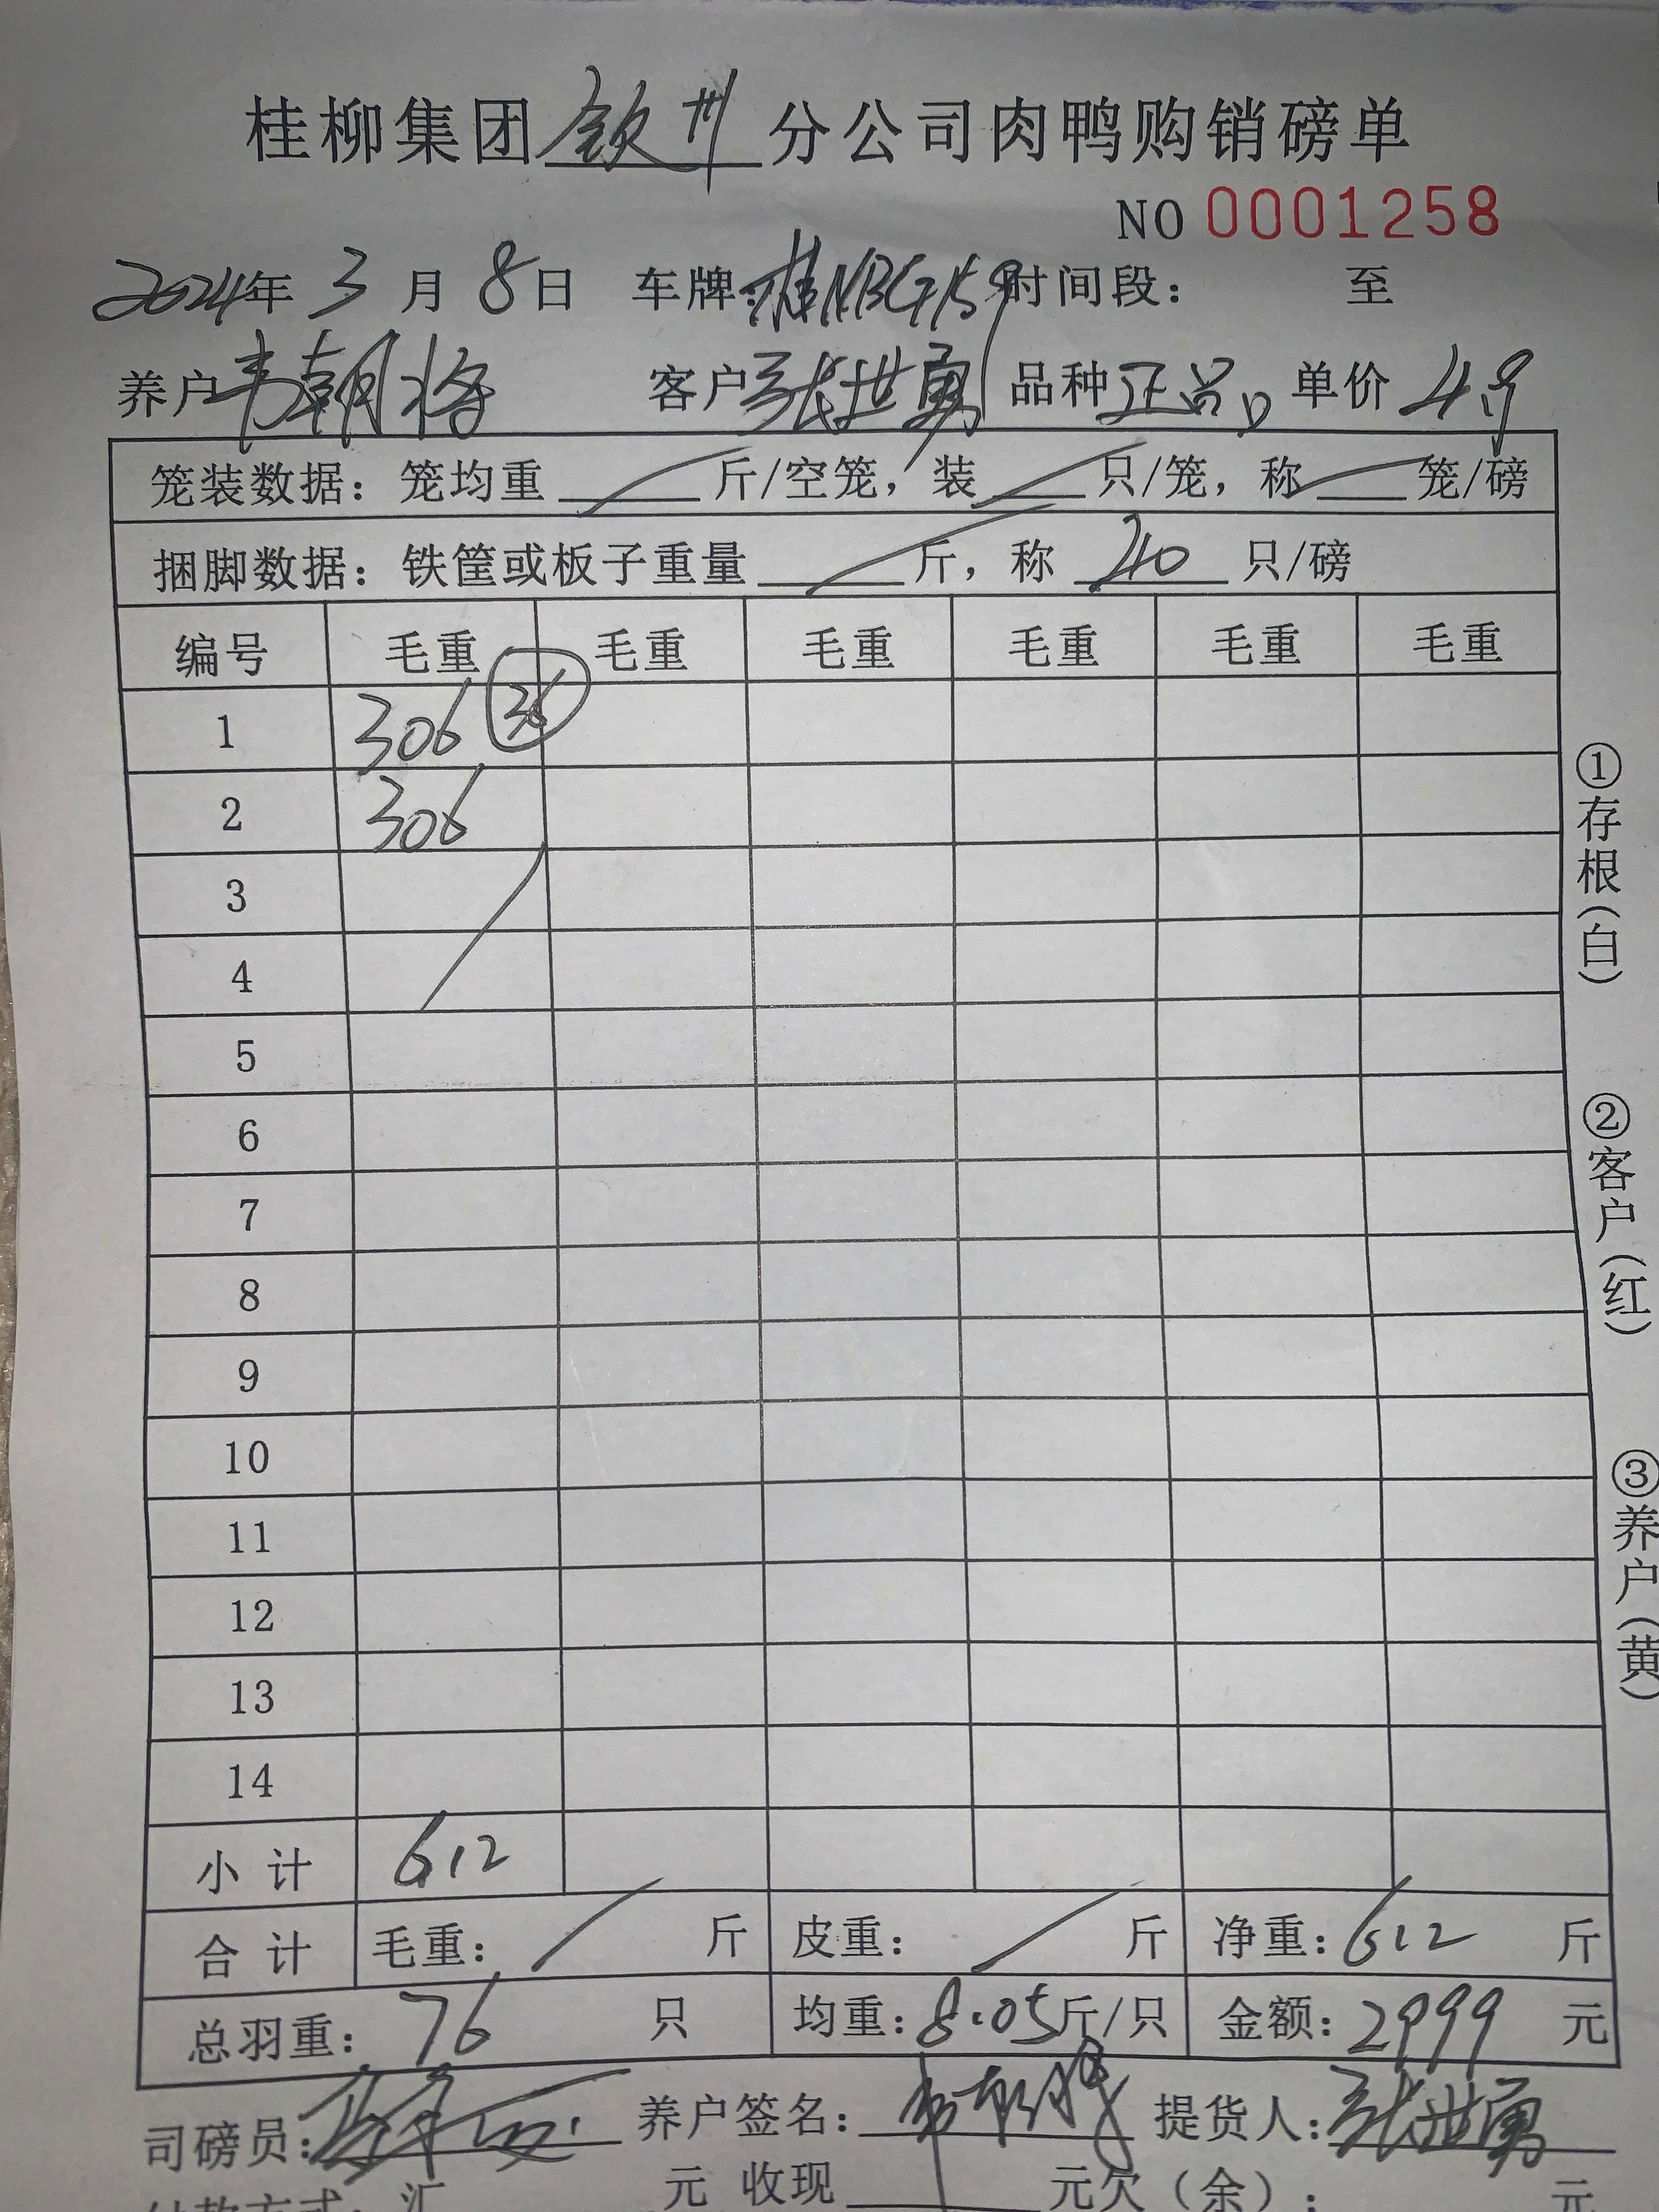 桂柳集团钦州分公司肉鸭购销磅单
NO 0001258
2024年 3 月 8 日 车牌: 桂NBG759 时间段: 至
养户 韦朝将 客户 张世勇 品种 正品 单价 4.9
笼装数据: 笼均重 斤/空笼, 装 只/笼, 称 笼/磅
捆脚数据: 铁筐或板子重量 斤, 称 40 只/磅
编号 毛重 毛重 毛重 毛重 毛重 毛重
1 306 36
2 306
3
4
5
6
7
8
9
10
11
12
13
14
小计 612
合计 毛重: 斤 皮重: 斤 净重: 612 斤
总羽重: 76 只 均重: 8.05 斤/只 金额: 2999 元
司磅员: 养户签名: 韦朝将 提货人: 张世勇
付款方式: 汇 元 收现 元 欠(余): 元
①存根(白)
②客户(红)
③养户(黄)